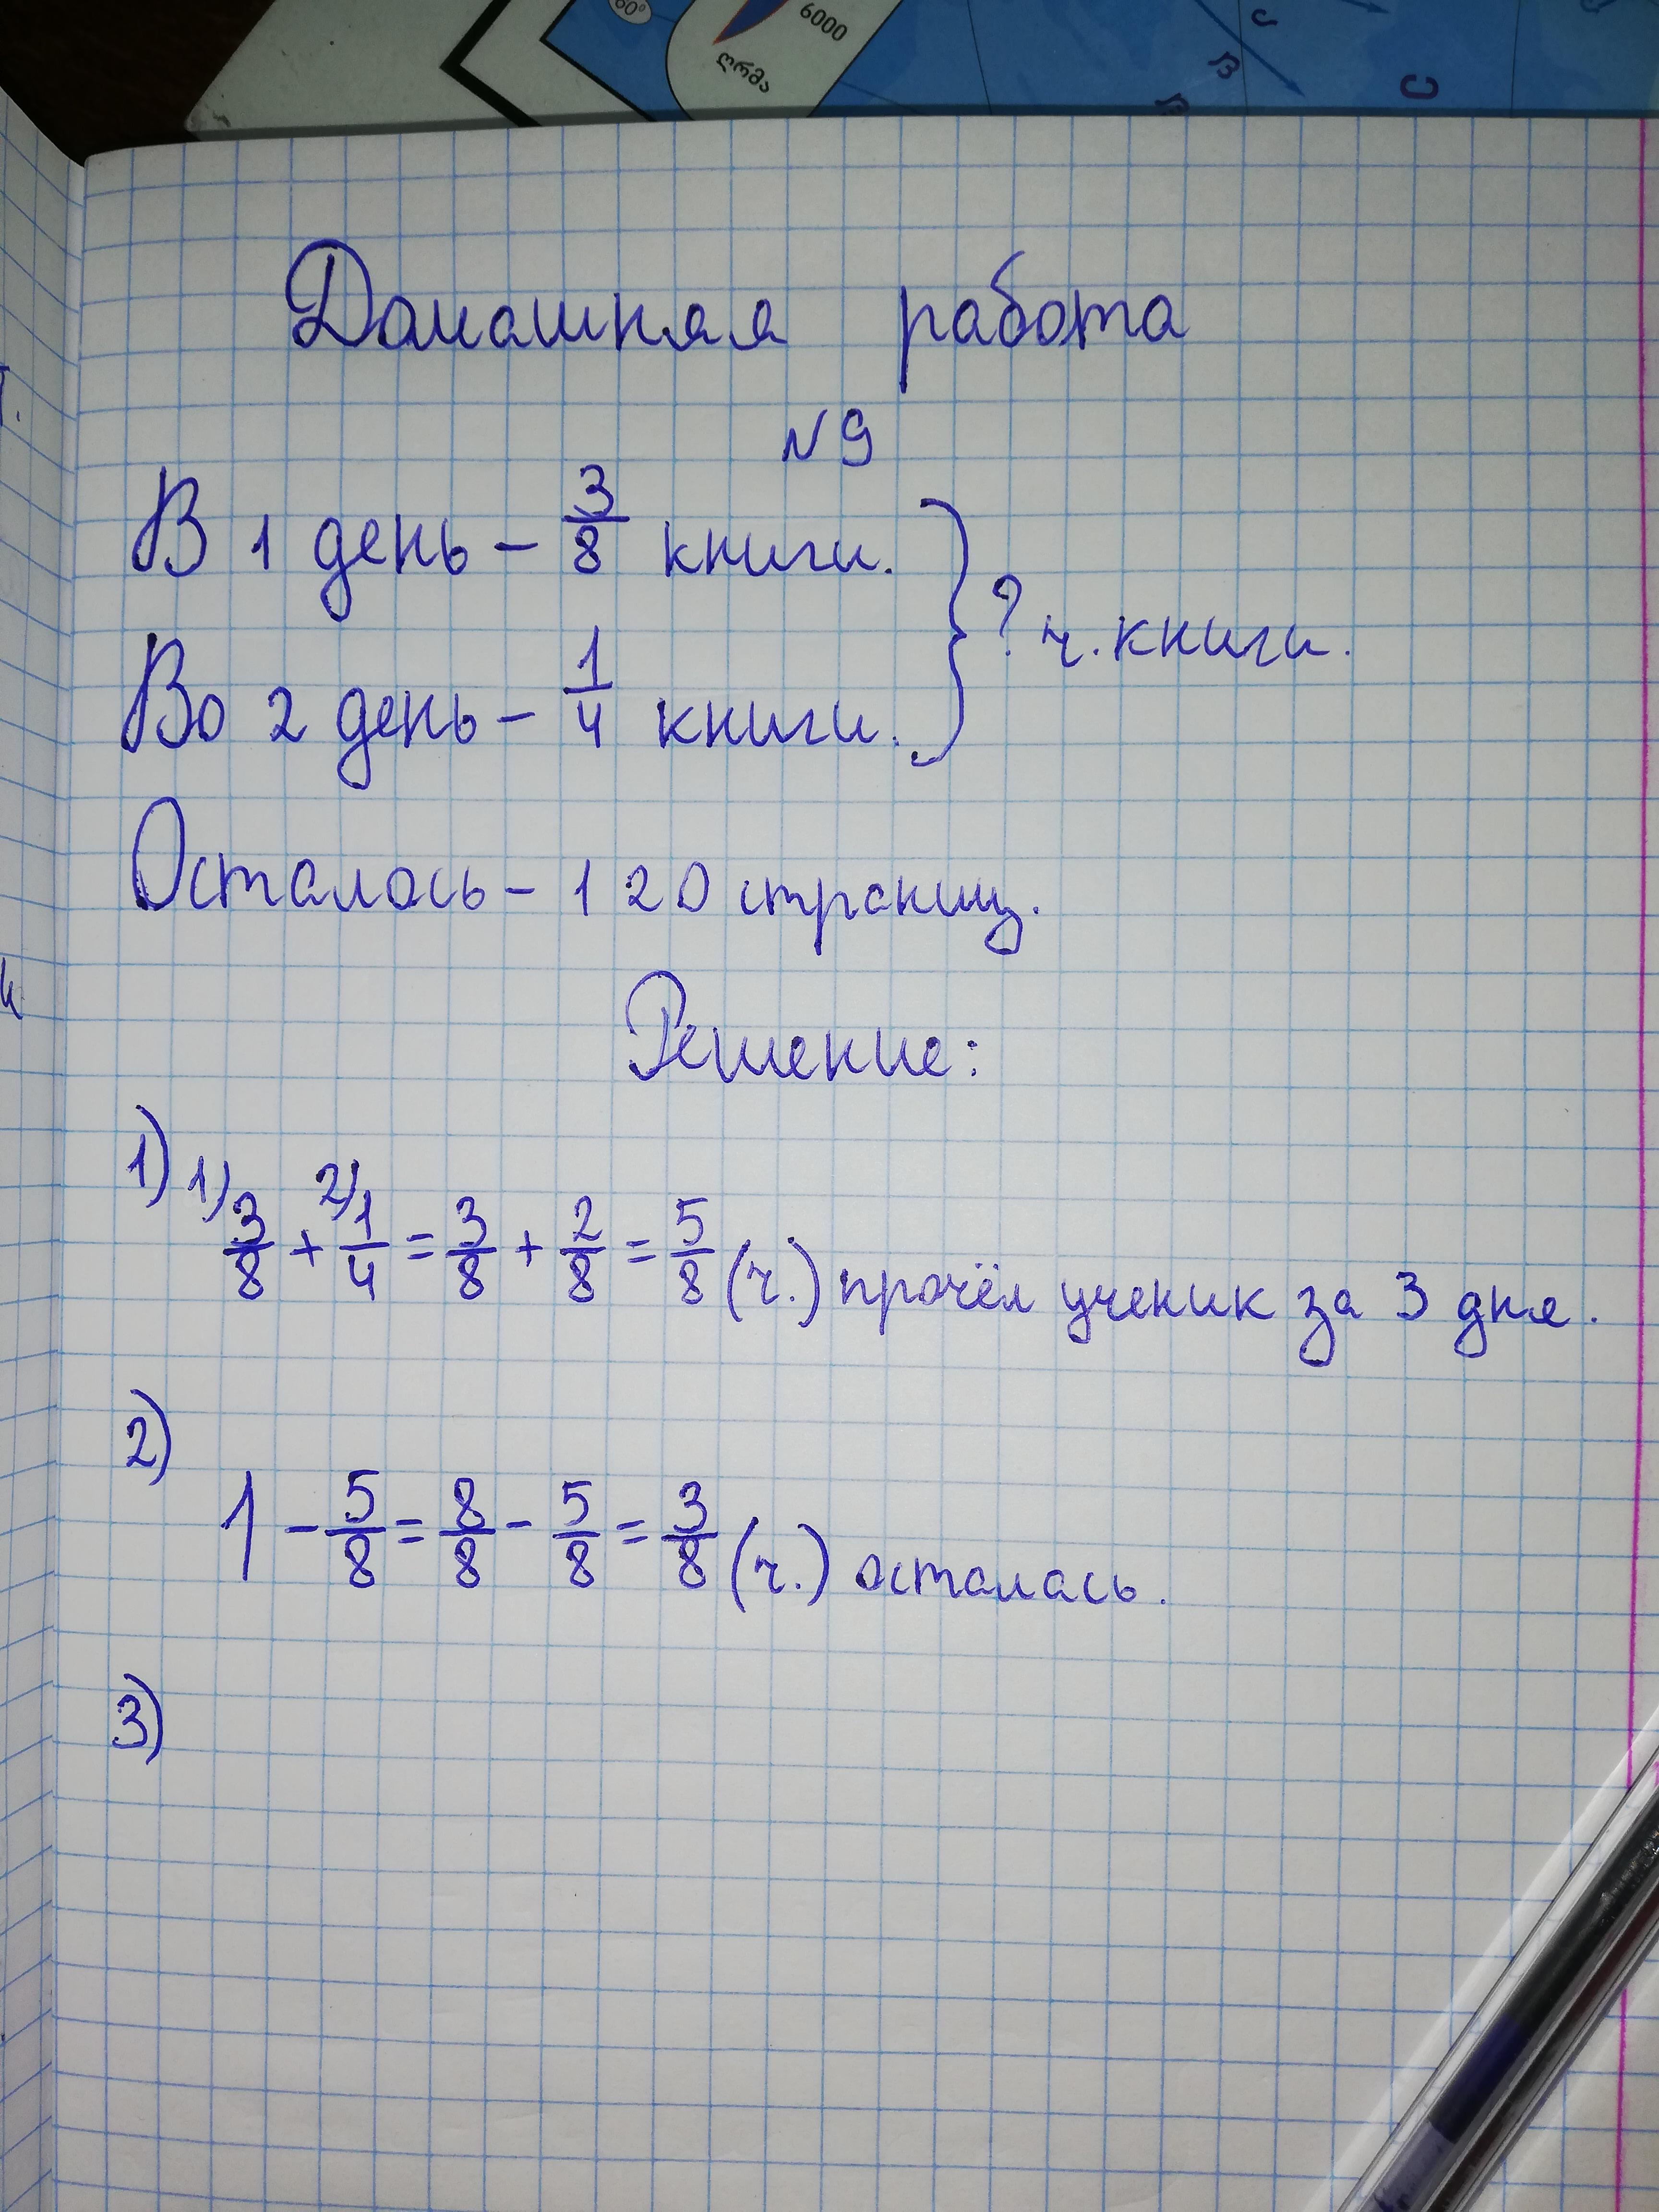 60°
6000
ღრმა
Домашняя работа
№9
В 1 день – 3/8 книги.
Во 2 день – 1/4 книги.
? ч. книги.
Осталось – 120 страниц.
Решение:
1) 1) 3/8 + 2) 1/4 = 3/8 + 2/8 = 5/8 (ч.) прочёл ученик за 3 дня.
2) 1 – 5/8 = 8/8 – 5/8 = 3/8 (ч.) осталась.
3)